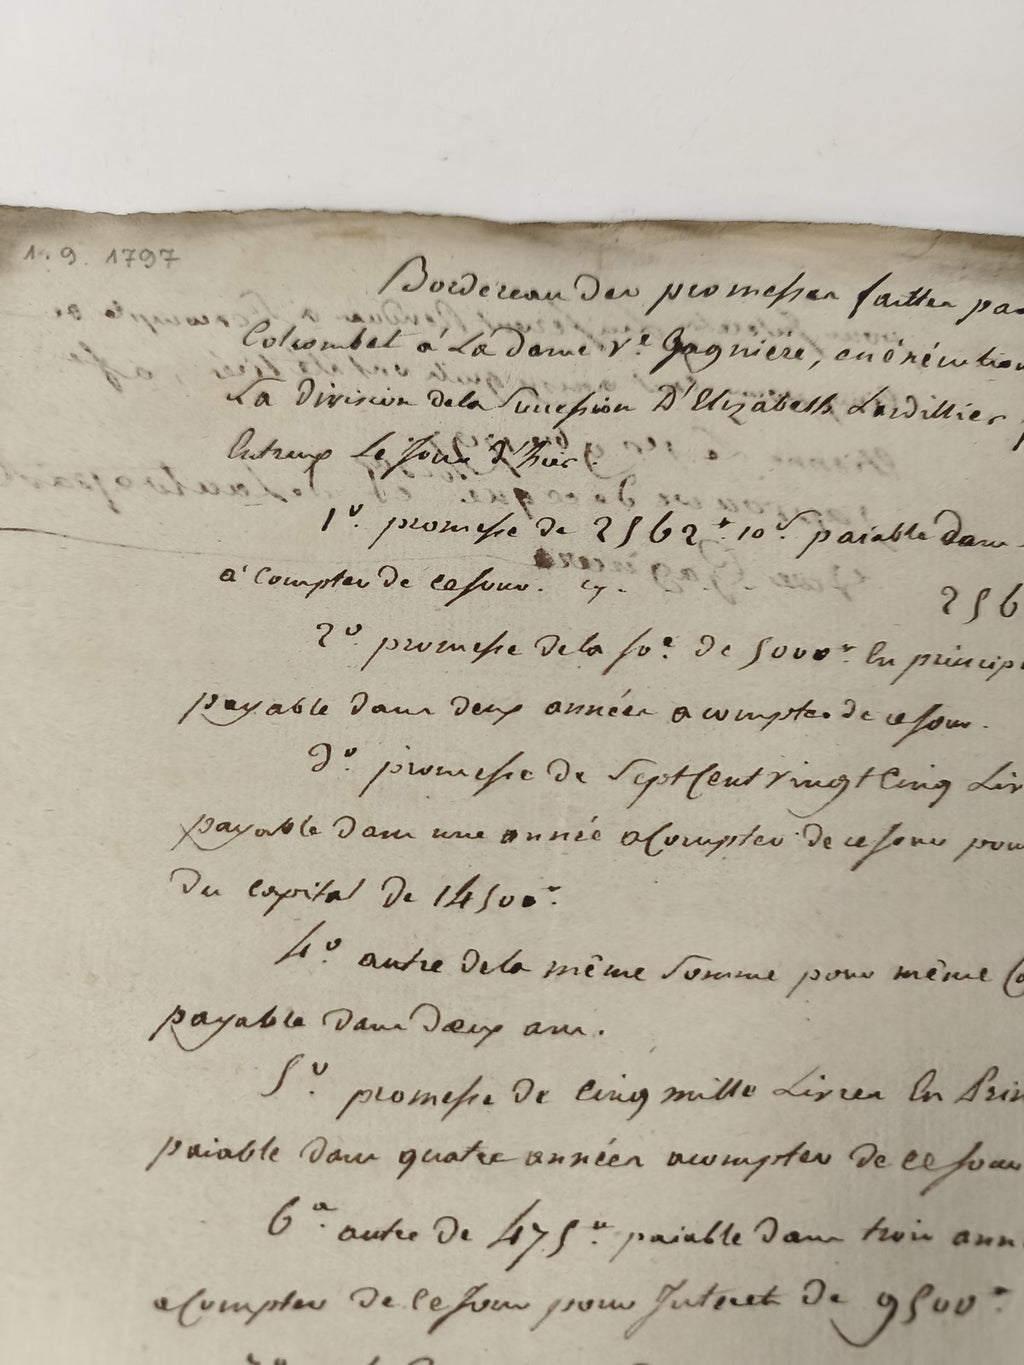 1. 9. 1797
Bordereau des promesses faittes pa
Colcombet á La dame Ve. Gagniere, en éxécution
La division de la Succession D'Elizabeth Lardillier
Entreux Le jour d'hier.
1º. promesse de 2562# 10s. paiable dans
á compter de ce jour. cy.
256
2º promesse de la soe. de 5000# En princip
payable dans deux années a compter de ce jour.
3º. promesse de Sept Cent vingt Cinq Liv
payable dans une année a Compter de ce jour pour
du capital de 14500#.
4º. autre de la même Somme pour même Ca
payable dans deux ans.
5º. promesse de Cinq mille Livres En Prin
paiable dans quatre années a compter de ce jour
6º. autre de 475# paiable dans trois ann
a Compter de ce Jour pour Interet de 9500#.